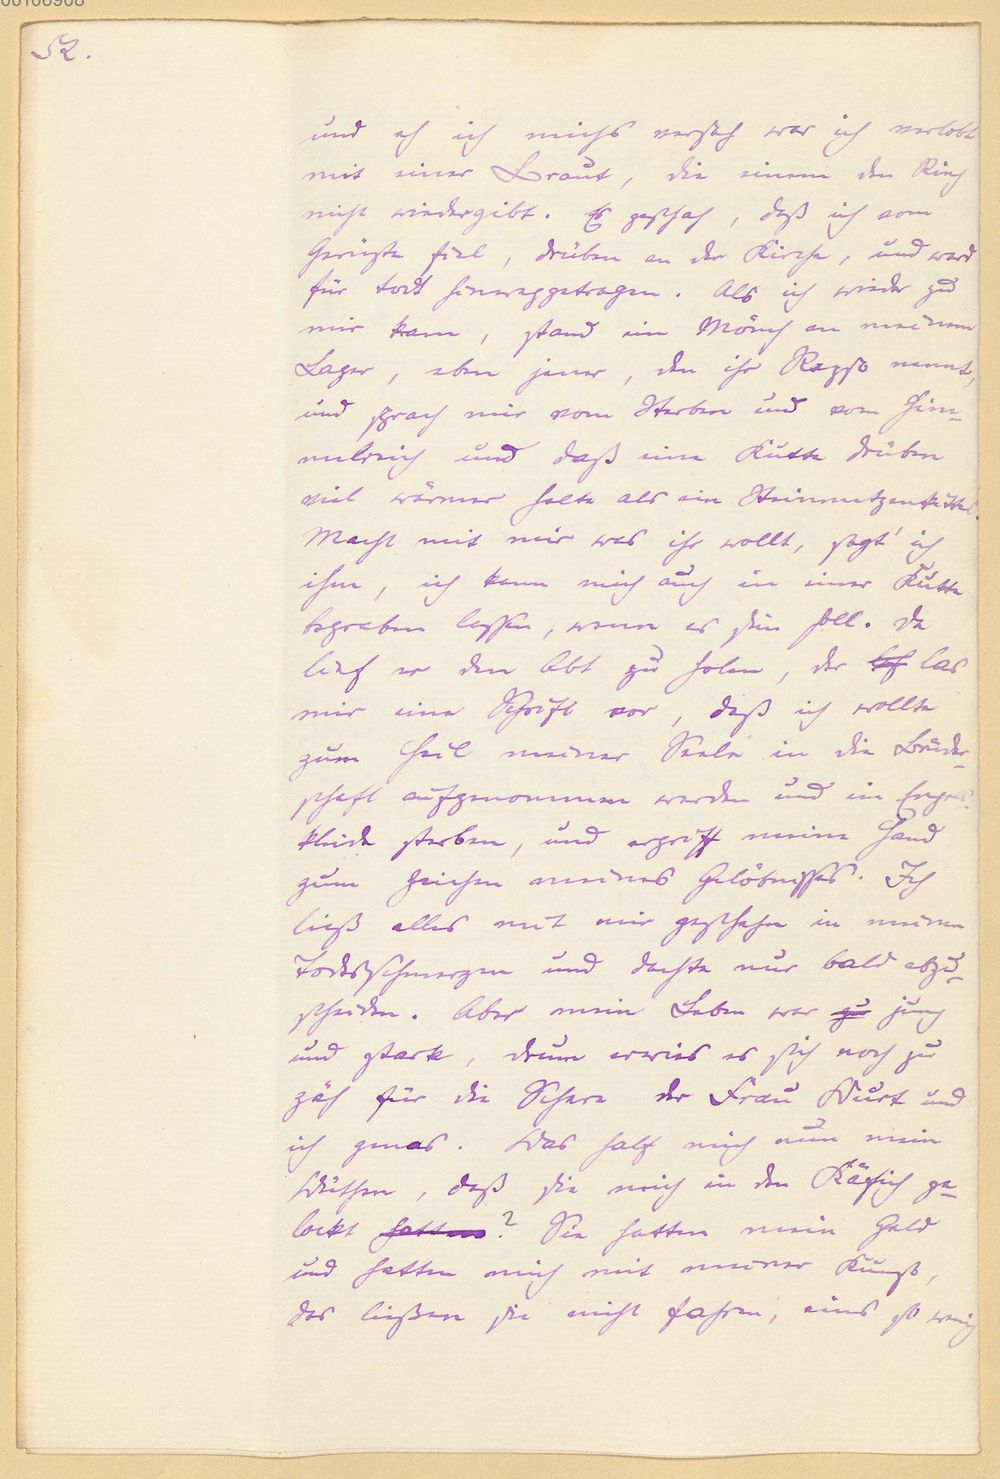 00106908
52.
und eh ich michs versah war ich verlobt
mit einer Braut, die einem den Ring
nicht wiedergibt. Es geschah, daß ich vom
Gerüste fiel, drüben an der Kirche, und ward
für todt hinweggetragen. Als ich wieder zu
mir kam, stand ein Mönch an meinem
Lager, eben jener, den ihr nennt,
und sprach mir vom Sterben und vom Him-
melreich und daß eine Kutte drüben
viel wärmer halte als ein Steinmetzenkittel.
Macht mit mir was ihr wollt, sagt' ich
ihm, ich kann mich auch in einer Kutte
begraben lassen, wenn es sein soll. Da
lief er den Abt zu holen, der las
mir eine Schrift vor, daß ich wollte
zum Heil meiner Seele in die Brüder-
schaft aufgenommen werden und im Engels-
kleide sterben, und ergriff meine Hand
zum Zeichen meines Gelöbnisses. Ich
ließ alles mit mir geschehn in meinen
Todesschmerzen und dachte nur bald abzu-
scheiden. Aber mein Leben war zu jung
und stark, drum erwies es sich noch zu
zäh für die Schere der Frau Wurt und
ich genas. Was half mich nun mein
Wüthen, daß sie mich in den Käfich ge-
lockt hatten? Sie hatten mein Geld
und hatten mich mit meiner Kunst,
das ließen sie nicht fahren, eins so wenig